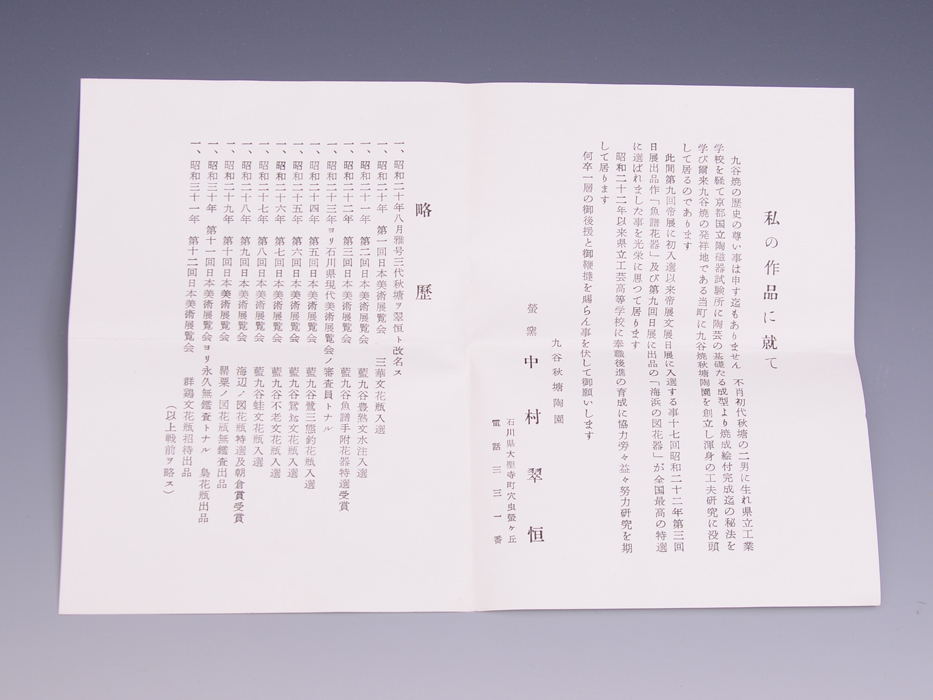 私の作品に就て
九谷焼の歴史の尊い事は申す迄もありません 不肖初代秋塘の二男に生れ県立工業
学校を経て京都国立陶磁器試験所に陶芸の基礎たる成型より焼成絵付完成迄の秘法を
学び爾来九谷焼の発祥地である当町に九谷焼秋塘陶園を創立し渾身の工夫研究に没頭
して居るのであります
此間第九回帝展に初入選以来帝展文展日展に入選する事十七回昭和二十二年第三回
日展出品作「魚譜花器」及び第九回日展に出品の「海浜の図花器」が全国最高の特選
に選ばれました事を光栄に思つて居ります
昭和二十二年以来県立工芸高等学校に奉職後進の育成に協力旁々益々努力研究を期
して居ります
何卒一層の御後援と御鞭撻を賜らん事を伏して御願いします
九谷秋塘陶園
螢窯 中村翠恒
石川県大聖寺町穴虫螢ヶ丘
電話三三一番
略歴
一、昭和二十年八月雅号三代秋塘ヲ翠恒ト改名ス
一、昭和二十年 第一回日本美術展覧会 三華文花瓶入選
一、昭和二十一年 第二回日本美術展覧会 藍九谷豊熟文水注入選
一、昭和二十二年 第三回日本美術展覧会 藍九谷魚譜手附花器特選受賞
一、昭和二十三年ヨリ石川県現代美術展覧会ノ審査員トナル
一、昭和二十四年 第五回日本美術展覧会 藍九谷鷺三態釣花瓶入選
一、昭和二十五年 第六回日本美術展覧会 藍九谷鴛鴦文花瓶入選
一、昭和二十六年 第七回日本美術展覧会 藍九谷不老文花瓶入選
一、昭和二十七年 第八回日本美術展覧会 藍九谷蛙文花瓶入選
一、昭和二十八年 第九回日本美術展覧会 海辺ノ図花瓶特選及朝倉賞受賞
一、昭和二十九年 第十回日本美術展覧会 罌粟ノ図花瓶無鑑査出品
一、昭和三十年 第十一回日本美術展覧会ヨリ永久無鑑査トナル 梟花瓶出品
一、昭和三十一年 第十二回日本美術展覧会 群鶏文花瓶招待出品
(以上戦前ヲ略ス)